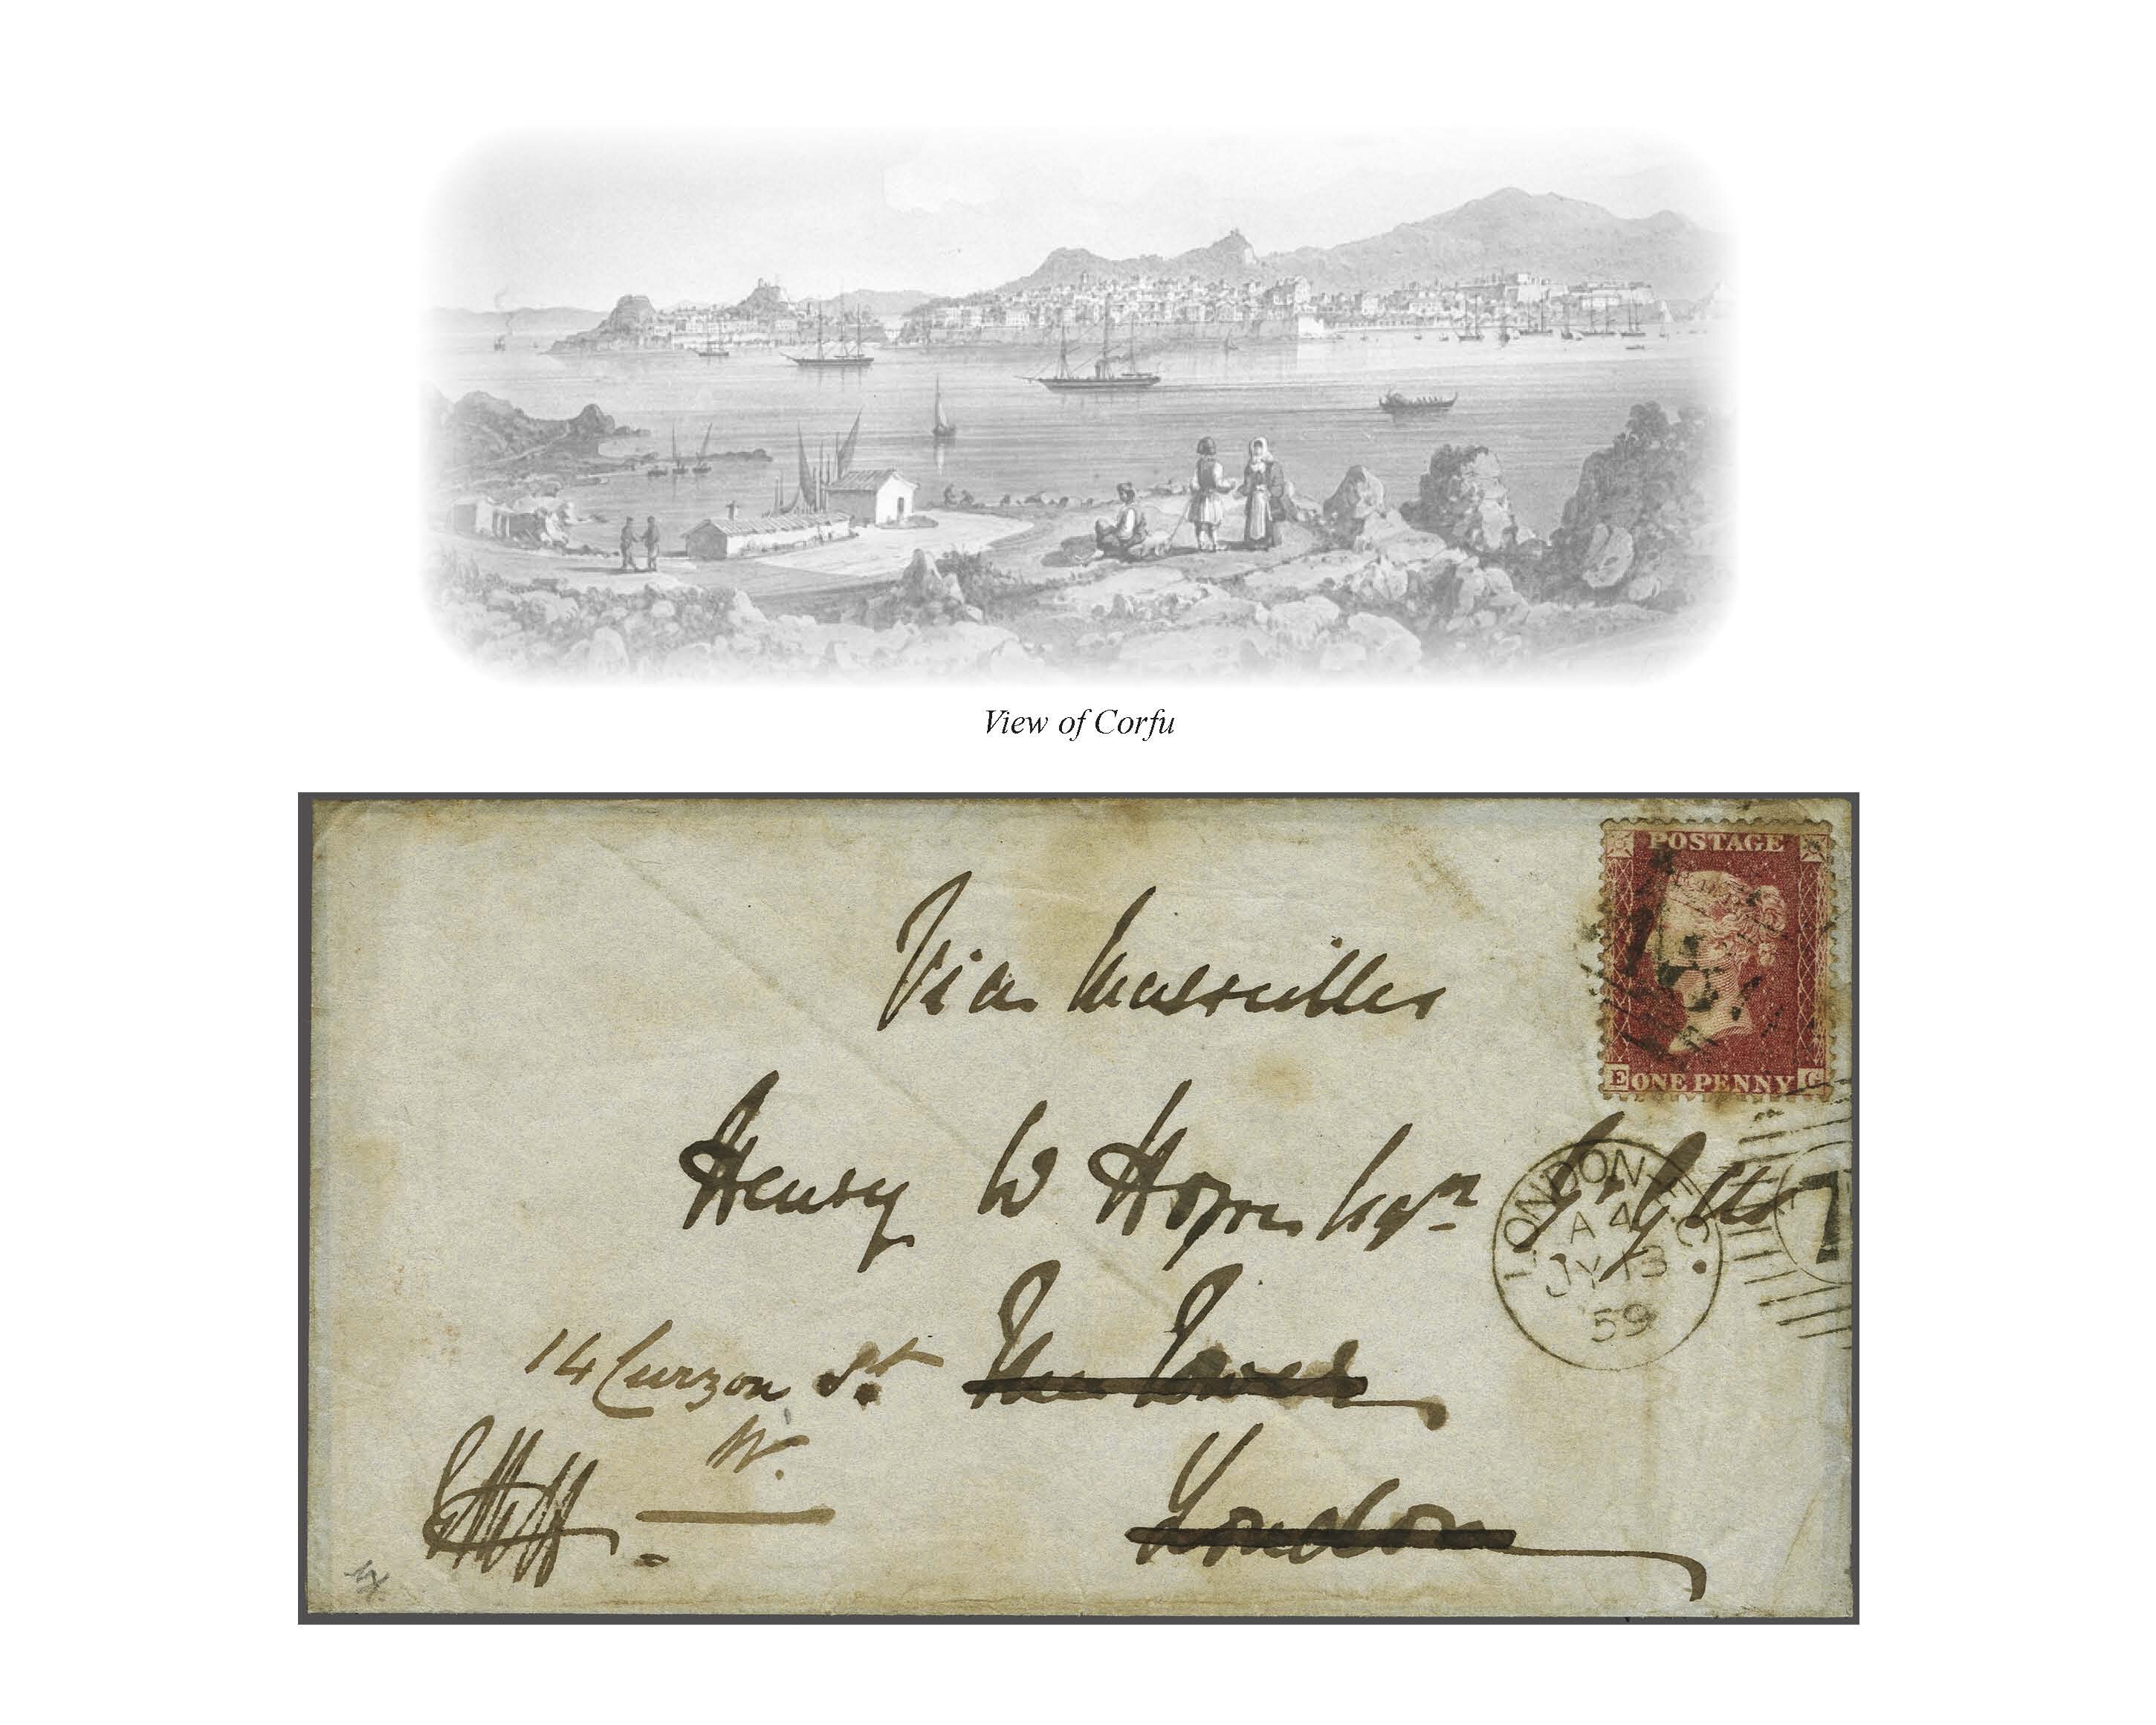 View of Corfu
POSTAGE
E ONE PENNY G
Via Marseilles
Henry W Hope Esqre
LONDON E.C
A 4
JY 13
59
7
14 Curzon St The Tower
W.
London